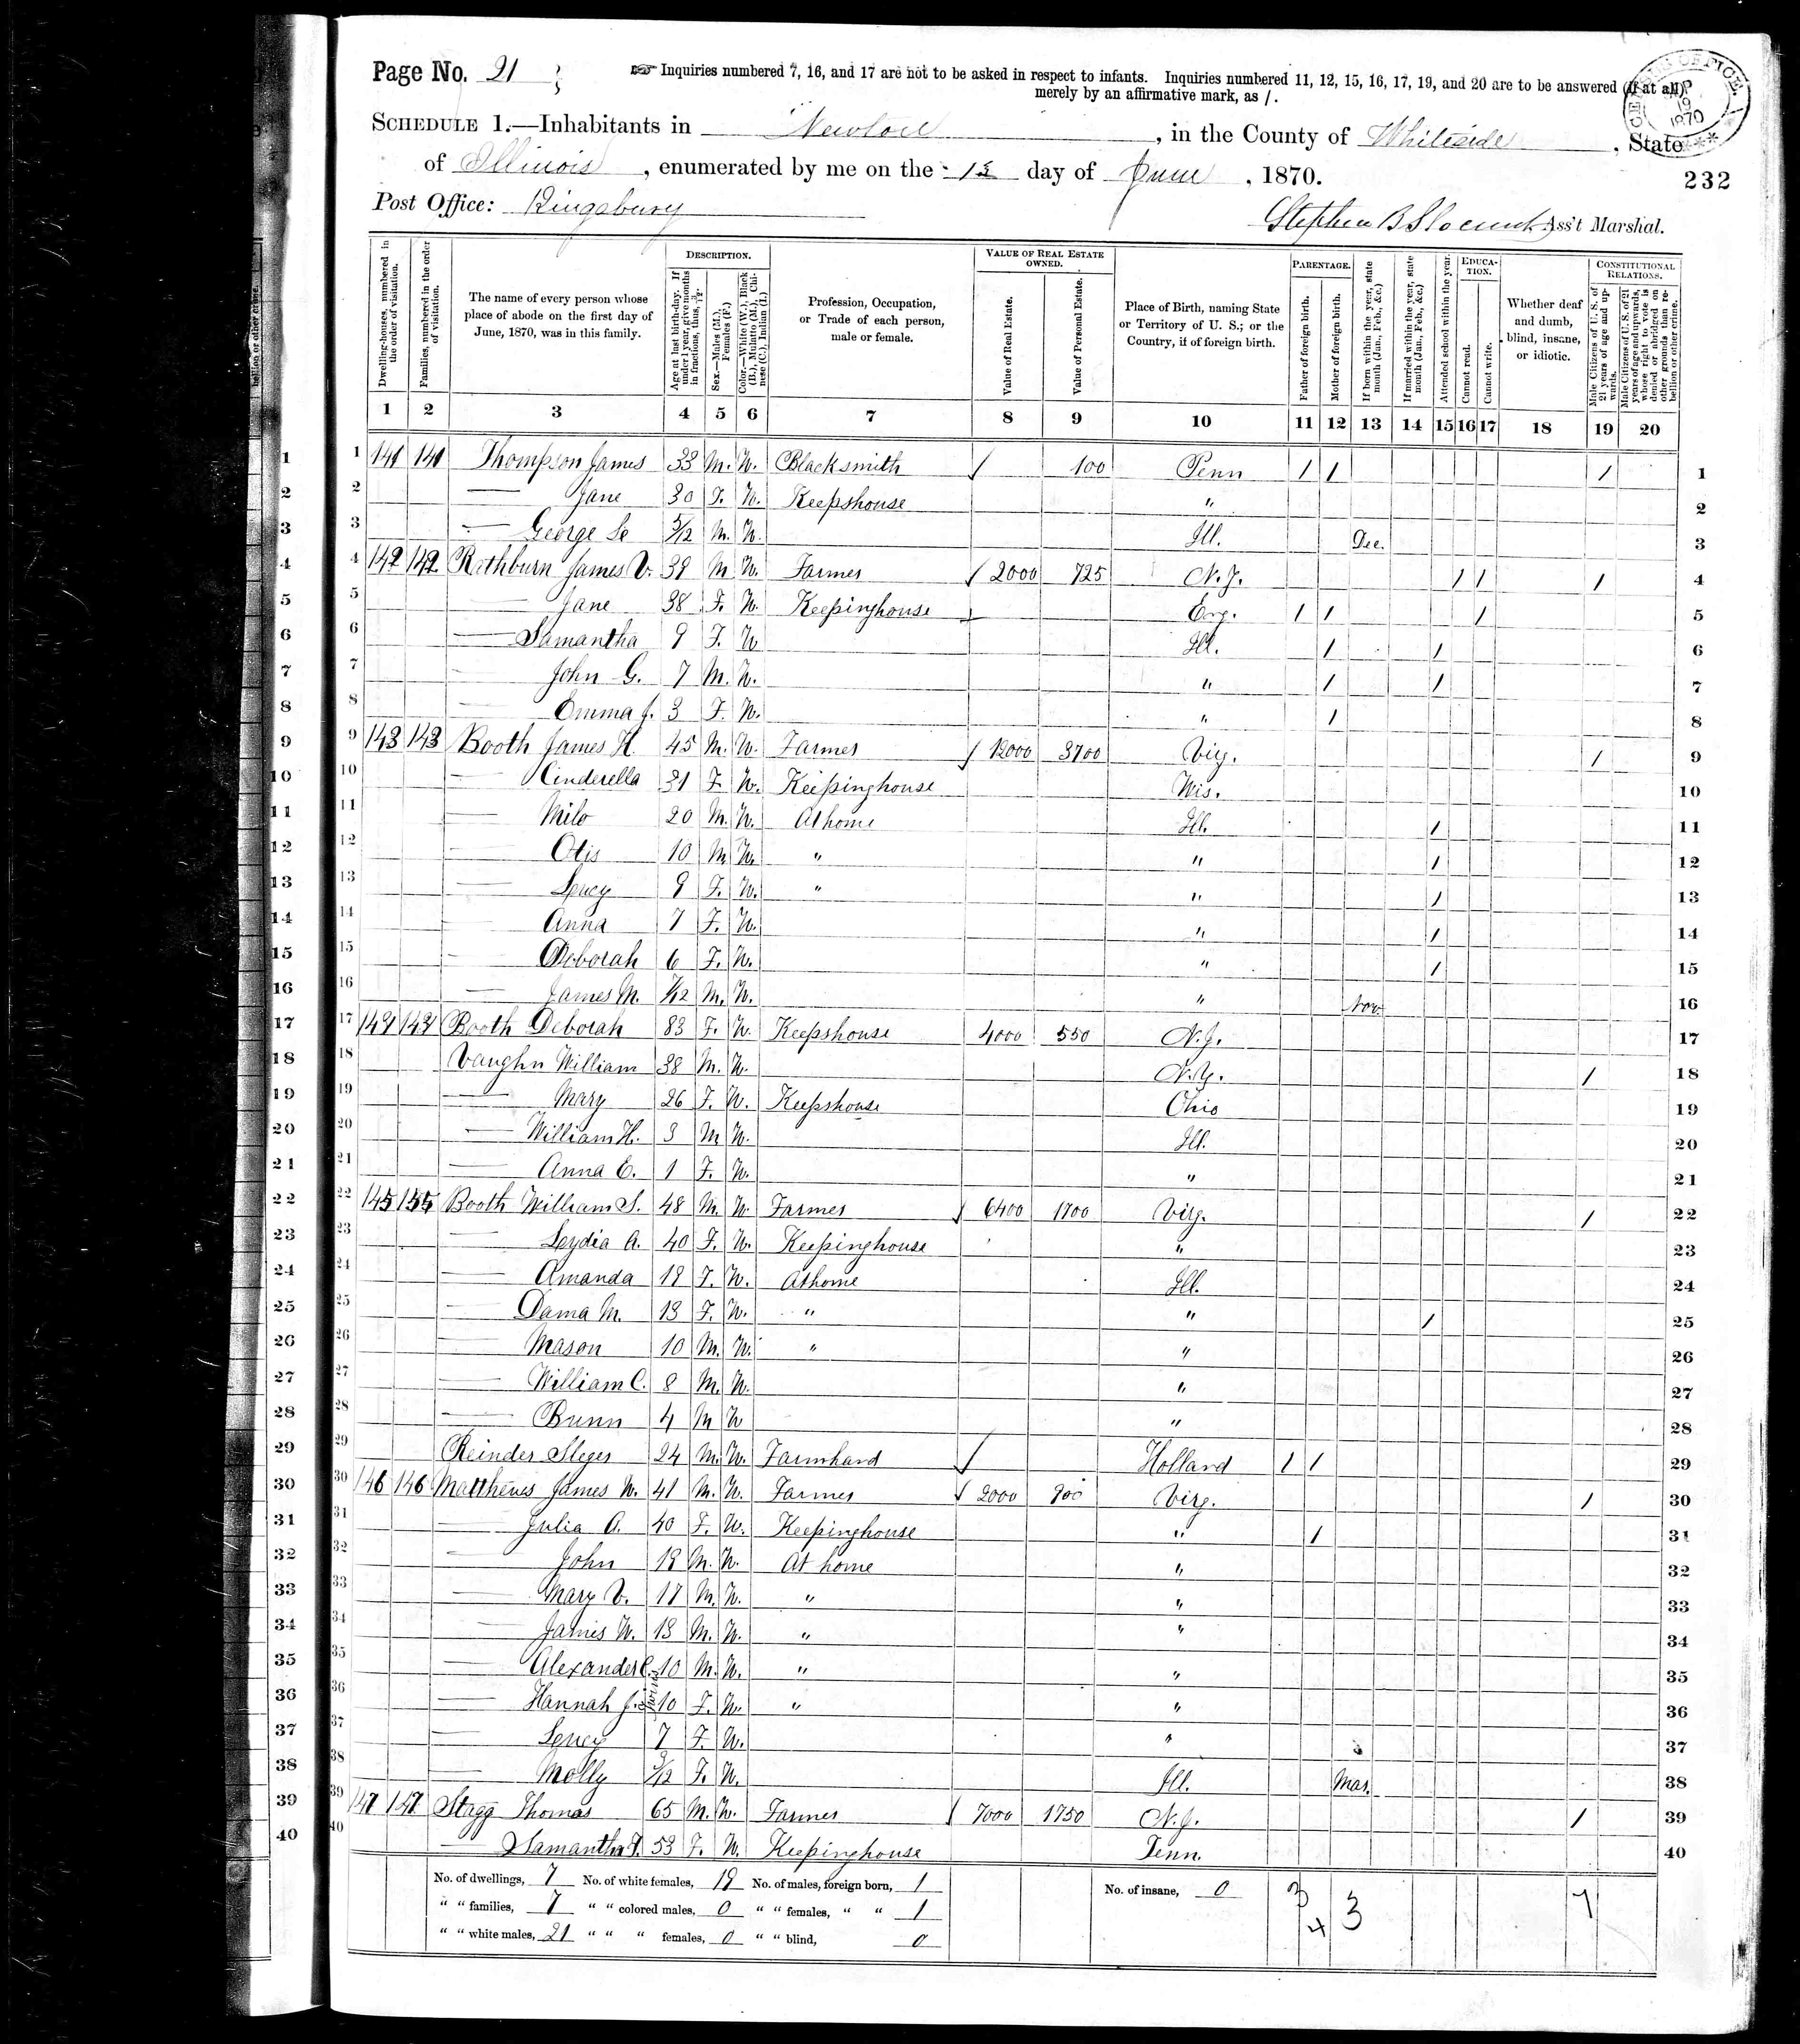 Page No. 21
☞ Inquiries numbered 7, 16, and 17 are not to be asked in respect to infants. Inquiries numbered 11, 12, 15, 16, 17, 19, and 20 are to be answered (if at all)
merely by an affirmative mark, as /.
SCHEDULE 1.—Inhabitants in Newton, in the County of Whiteside, State
of Illinois, enumerated by me on the 13 day of June, 1870.
232
Post Office: Kingsbury
Stephen B Slocumb, Ass't Marshal.
Dwelling-houses, numbered in the order of visitation.
Families, numbered in the order of visitation.
The name of every person whose place of abode on the first day of June, 1870, was in this family.
DESCRIPTION.
Age at last birth-day. If under 1 year, give months in fractions, thus, 3/12.
Sex.—Males (M.), Females (F.)
Color.—White (W.), Black (B.), Mulatto (M.), Chinese (C.), Indian (I.)
Profession, Occupation, or Trade of each person, male or female.
VALUE OF REAL ESTATE OWNED.
Value of Real Estate.
Value of Personal Estate.
Place of Birth, naming State or Territory of U. S.; or the Country, if of foreign birth.
PARENTAGE.
Father of foreign birth.
Mother of foreign birth.
If born within the year, state month (Jan., Feb., &c.)
If married within the year, state month (Jan., Feb., &c.)
Attended school within the year.
EDUCATION.
Cannot read.
Cannot write.
Whether deaf and dumb, blind, insane, or idiotic.
CONSTITUTIONAL RELATIONS.
Male Citizens of U. S. of 21 years of age and upwards.
Male Citizens of U. S. of 21 years of age and upwards, whose right to vote is denied or abridged on other grounds than rebellion or other crime.
1 2 3 4 5 6 7 8 9 10 11 12 13 14 15 16 17 18 19 20
1 141 141 Thompson James 33 M. W. Blacksmith / 100 Penn / / / 1
2 — Jane 30 F. W. Keepshouse " 2
3 — George 5/12 M. W. Ill. Dec. 3
4 142 142 Rathburn James V. 39 M W. Farmer / 2000 725 N.J. / / / 4
5 — Jane 38 F. W. Keepinghouse Eng. / / / 5
6 — Samantha 9 F. W Ill. / / 6
7 — John G. 7 M. W. " / / 7
8 — Emma J. 3 F. W. " / 8
9 143 143 Booth James H. 45 M. W. Farmer / 12000 3700 Virg. / 9
10 — Cinderella 31 F. W. Keepinghouse Wis. 10
11 — Milo 20 M. W. At home Ill. / 11
12 — Otis 10 M W. " " / 12
13 — Lucy 9 F. W. " " / 13
14 — Anna 7 F. W. " / 14
15 — Deborah 6 F. W. " / 15
16 — James M. 7/12 M. W. " Nov. 16
17 144 144 Booth Deborah 83 F. W. Keepshouse 4000 550 N.J. 17
18 Vaughn William 38 M. W. N.Y. / 18
19 — Mary 26 F. W. Keepshouse Ohio 19
20 — William H. 3 M W. Ill. 20
21 — Anna E. 1 F. W. " 21
22 145 145 Booth William S. 48 M. W. Farmer / 6400 1700 Virg. / 22
23 — Lydia A. 40 F. W. Keepinghouse " 23
24 — Amanda 19 F. W. At home Ill. 24
25 — Dama M. 13 F. W. " " / 25
26 — Mason 10 M. W. " " 26
27 — William C. 8 M. W. " 27
28 — Bunn 4 M W " 28
29 Reinder Sleger 24 M. W. Farmhand / Holland / / 29
30 146 146 Matthews James W. 41 M. W. Farmer / 2000 900 Virg. / 30
31 — Julia A. 40 F. W. Keepinghouse " / 31
32 — John 19 M. W. At home " 32
33 — Mary V. 17 M. W. " " 33
34 — James W. 13 M. W. " " 34
35 — Alexander C. 10 M. W. " " 35
36 — Hannah J. twins 10 F. W. " " 36
37 — Lucy 7 F. W. " 37
38 — Molly 3/12 F. W. Ill. Mar. 38
39 147 147 Stagg Thomas 65 M. W. Farmer / 7000 1750 N.J. / 39
40 — Samantha 53 F. W. Keepinghouse Penn. 40
No. of dwellings, 7 No. of white females, 19 No. of males, foreign born, 1 No. of insane, 0 3 3 7
" " families, 7 " " colored males, 0 " " females, " " 1 4
" " white males, 21 " " " females, 0 " " blind, 0